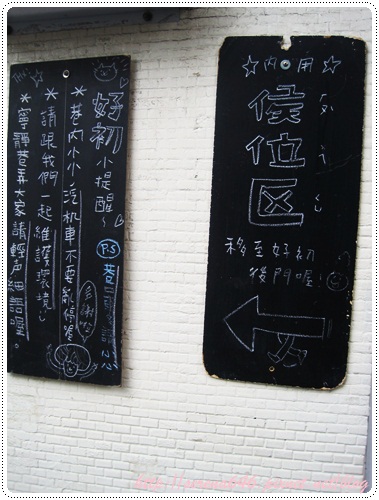 好初小提醒~
*巷內小小,汽机車不要亂停喔
多謝您
*請跟我們一起維護環境
*寧靜巷弄大家請輕声細語喔。
P.S
☆內用☆
侯位区
移至好初
後門喔